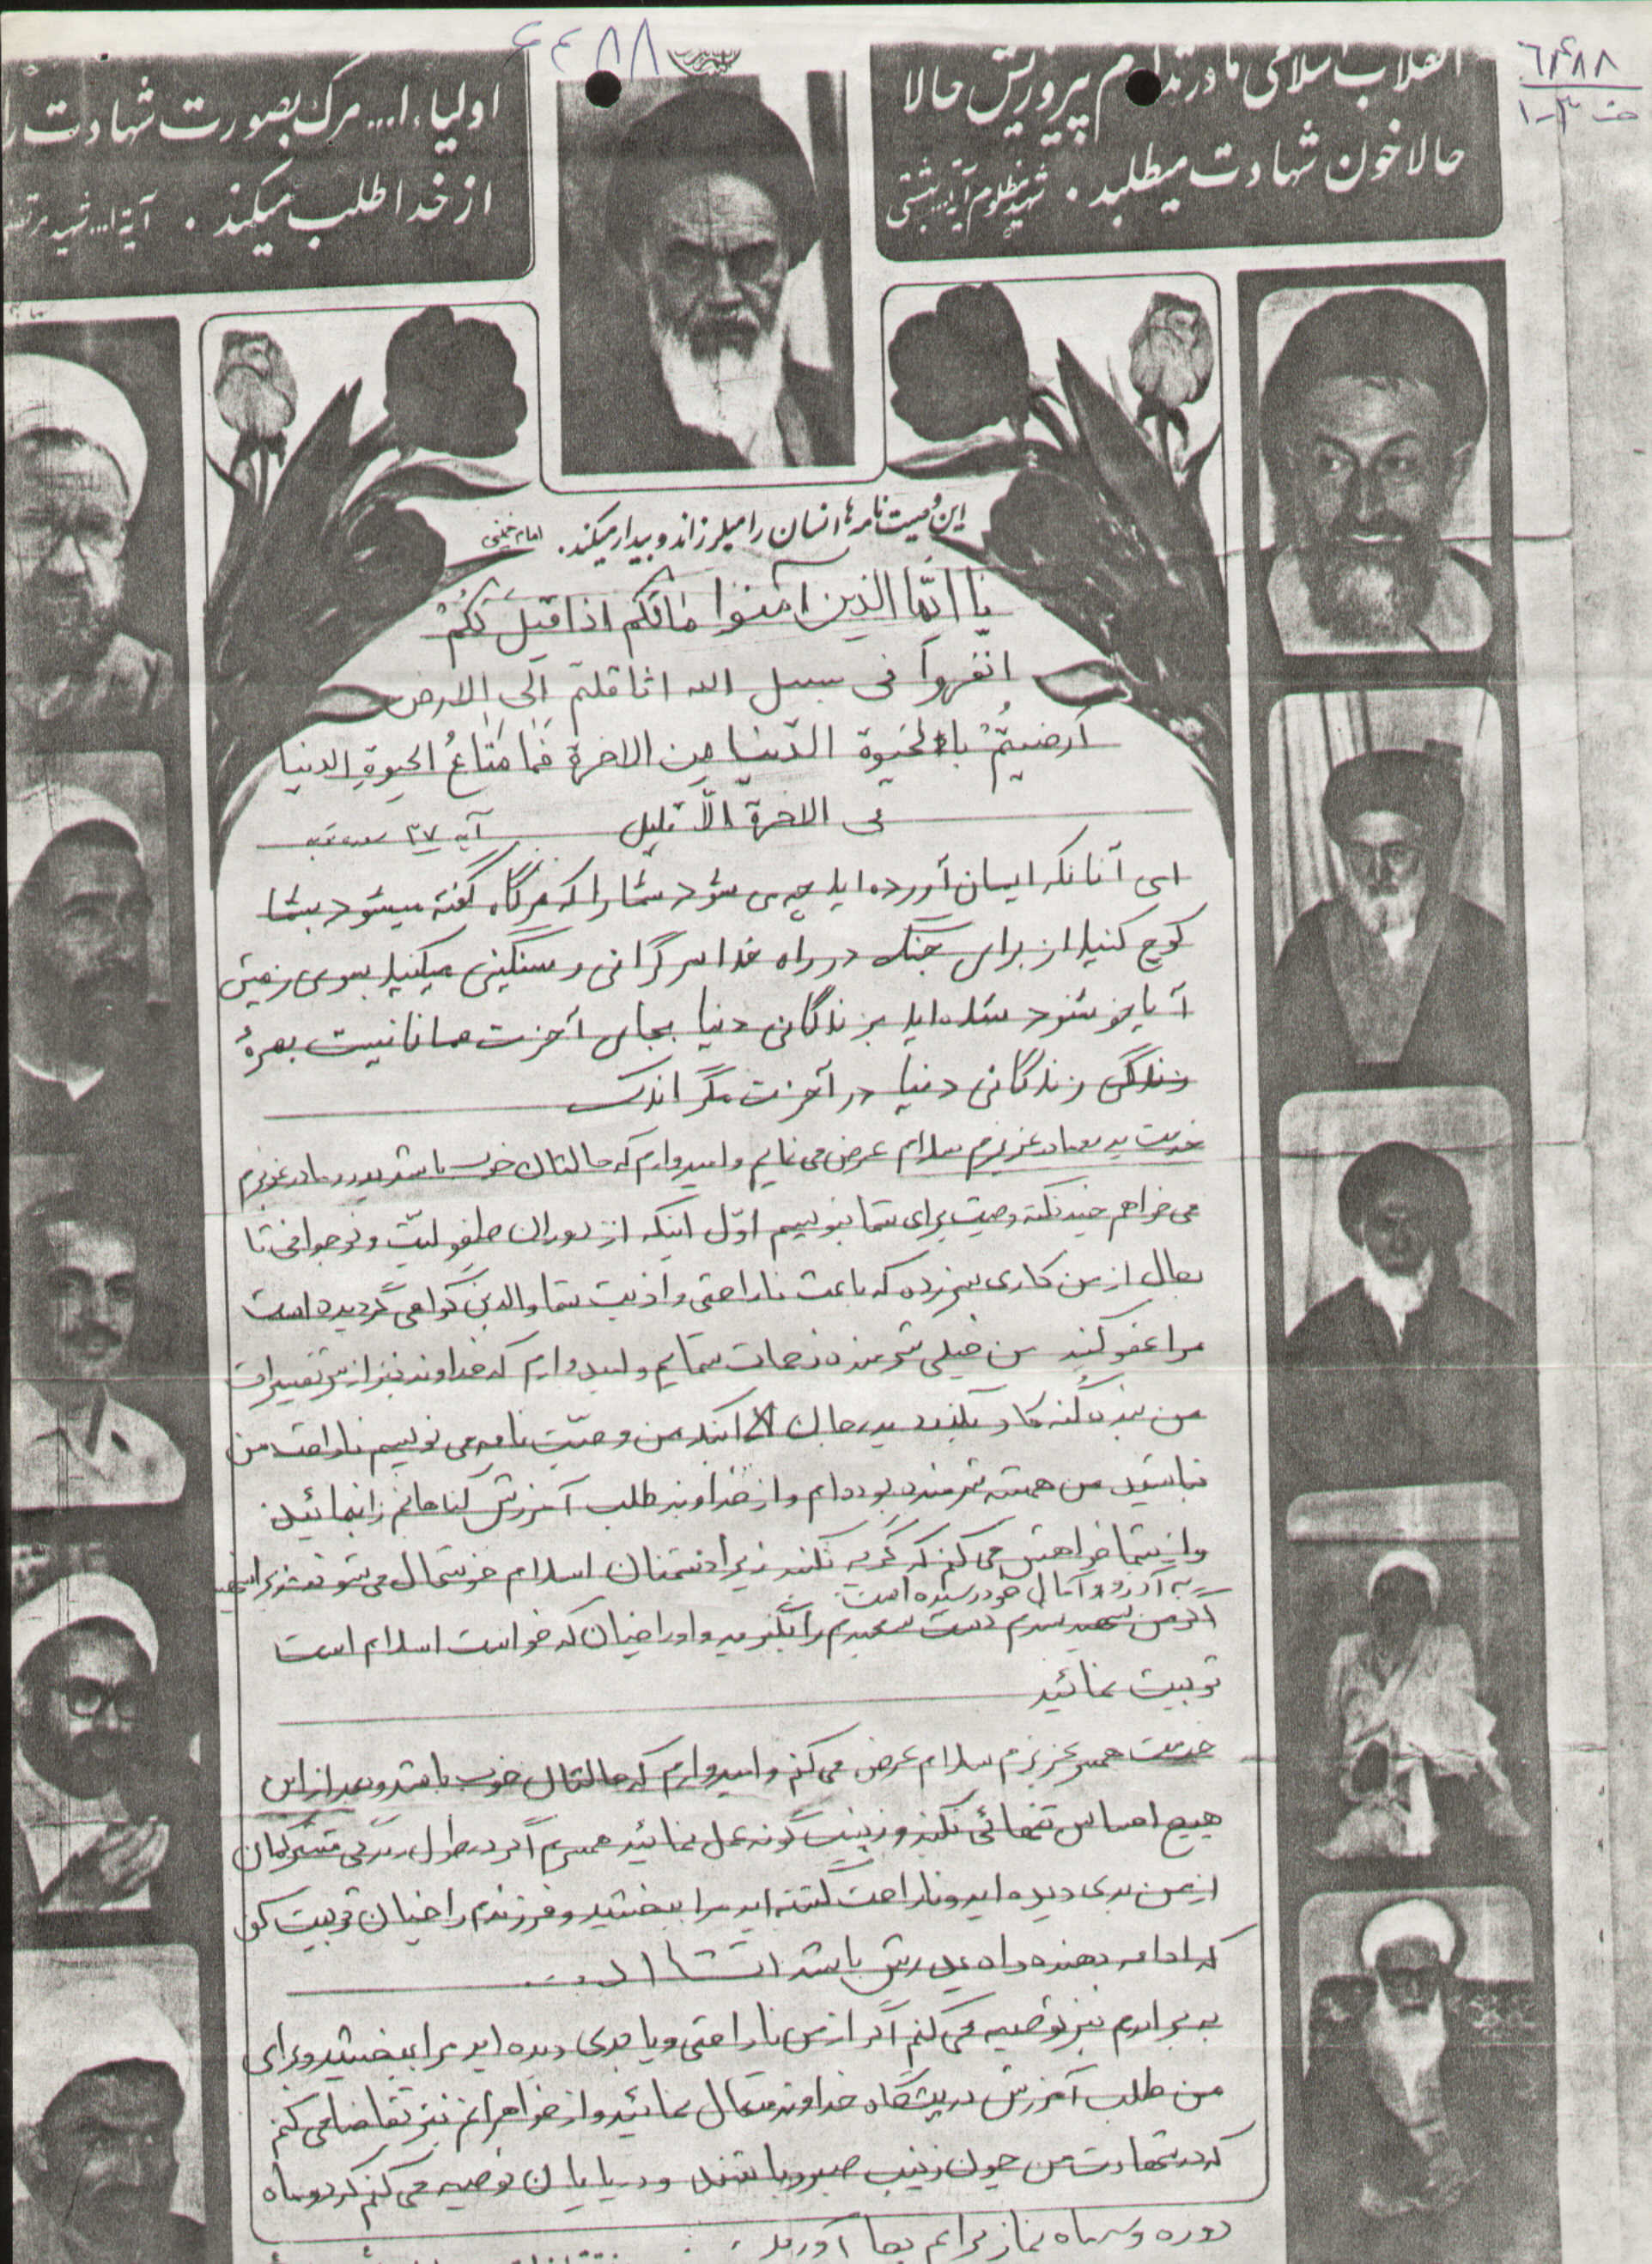 ۶۴۸۸
۶۴۸۸
انقلاب اسلامی ما در تداوم پیروزیش حالا
حالا خون شهادت میطلبد . شهید مظلوم آیة... بهشتی
اولیاء ا... مرگ بصورت شهادت را
از خدا طلب میکنند . آیة ا... شهید مرتضی
این وصیت نامه ها انسان را میلرزاند و بیدار میکند . امام خمینی
یا ایّها الذین آمنوا مالکم اذا قیل لَکُمْ
انفروا فی سبیل الله اثاقلتم الی الارض
اَرضیتُمْ بالحیوة الدّنیا مِن الاخرة فَما مَتاعُ الحیوةِ الدنیا
فی الاخرة الّا قلیل آیه ۳۷ سوره توبه
ای آنانکه ایمان آورده اید چه می شود شما را که هرگاه گفته میشود بشما
کوچ کنید از برای جنگ در راه خدا سرگرانی و سنگینی میکنید بسوی زمین
آیا خوشنود شده اید بزندگانی دنیا بجای آخرت همانا نیست بهرهٔ
زندگی زندگانی دنیا در آخرت مگر اندک
خدمت پدر و مادر عزیزم سلام عرض می نمایم و امیدوارم که حالتان خوب باشد پدر و مادر عزیزم
می خواهم چند نکته وصیت برای شما بنویسم اوّل اینکه از دوران طفولیّت و نوجوانی تا
بحال از من کاری سر زده که باعث ناراحتی و اذیت شما والدین گرامی گردیده است
مرا عفو کنید من خیلی شرمنده زحمات شمایم و امیدوارم که خداوند نیز از سر تقصیرات
من بنده گنه کار بگذرد پدر جان از اینکه من وصیّت نامه می نویسم ناراحت من
نباشید من همیشه شرمنده بوده ام و از خداوند طلب آمرزش گناهانم را بنمائید
و از شما خواهش می کنم که گریه نکنید زیرا دشمنان اسلام خوشحال می شوند
به آرزو و آمال خود رسیده است
اگر من شهید شدم دست را بگیرید و او را چنان که خواست اسلام است
تربیت نمائید
خدمت همسر عزیزم سلام عرض می کنم و امیدوارم که حالتان خوب باشد و بعد از این
هیچ احساس تنهائی نکنید و زینب گونه عمل نمائید همسرم اگر در طول زندگی مشترکمان
از من بدی دیده اید و ناراحت گشته اید مرا ببخشید و فرزندم را چنان تربیت کن
که ادامه دهنده راه پدرش باشد انشا ا...
به برادرم نیز توصیه می کنم اگر از من ناراحتی و یا بدی دیده اید مرا ببخشید و برای
من طلب آمرزش در پیشگاه خداوند متعال نمائید و از خواهرانم نیز تقاضا می کنم
که در شهادت من چون زینب صبور باشند و در پایان توصیه می کنم که دو ماه
روزه و سه ماه نماز برایم بجا آورید